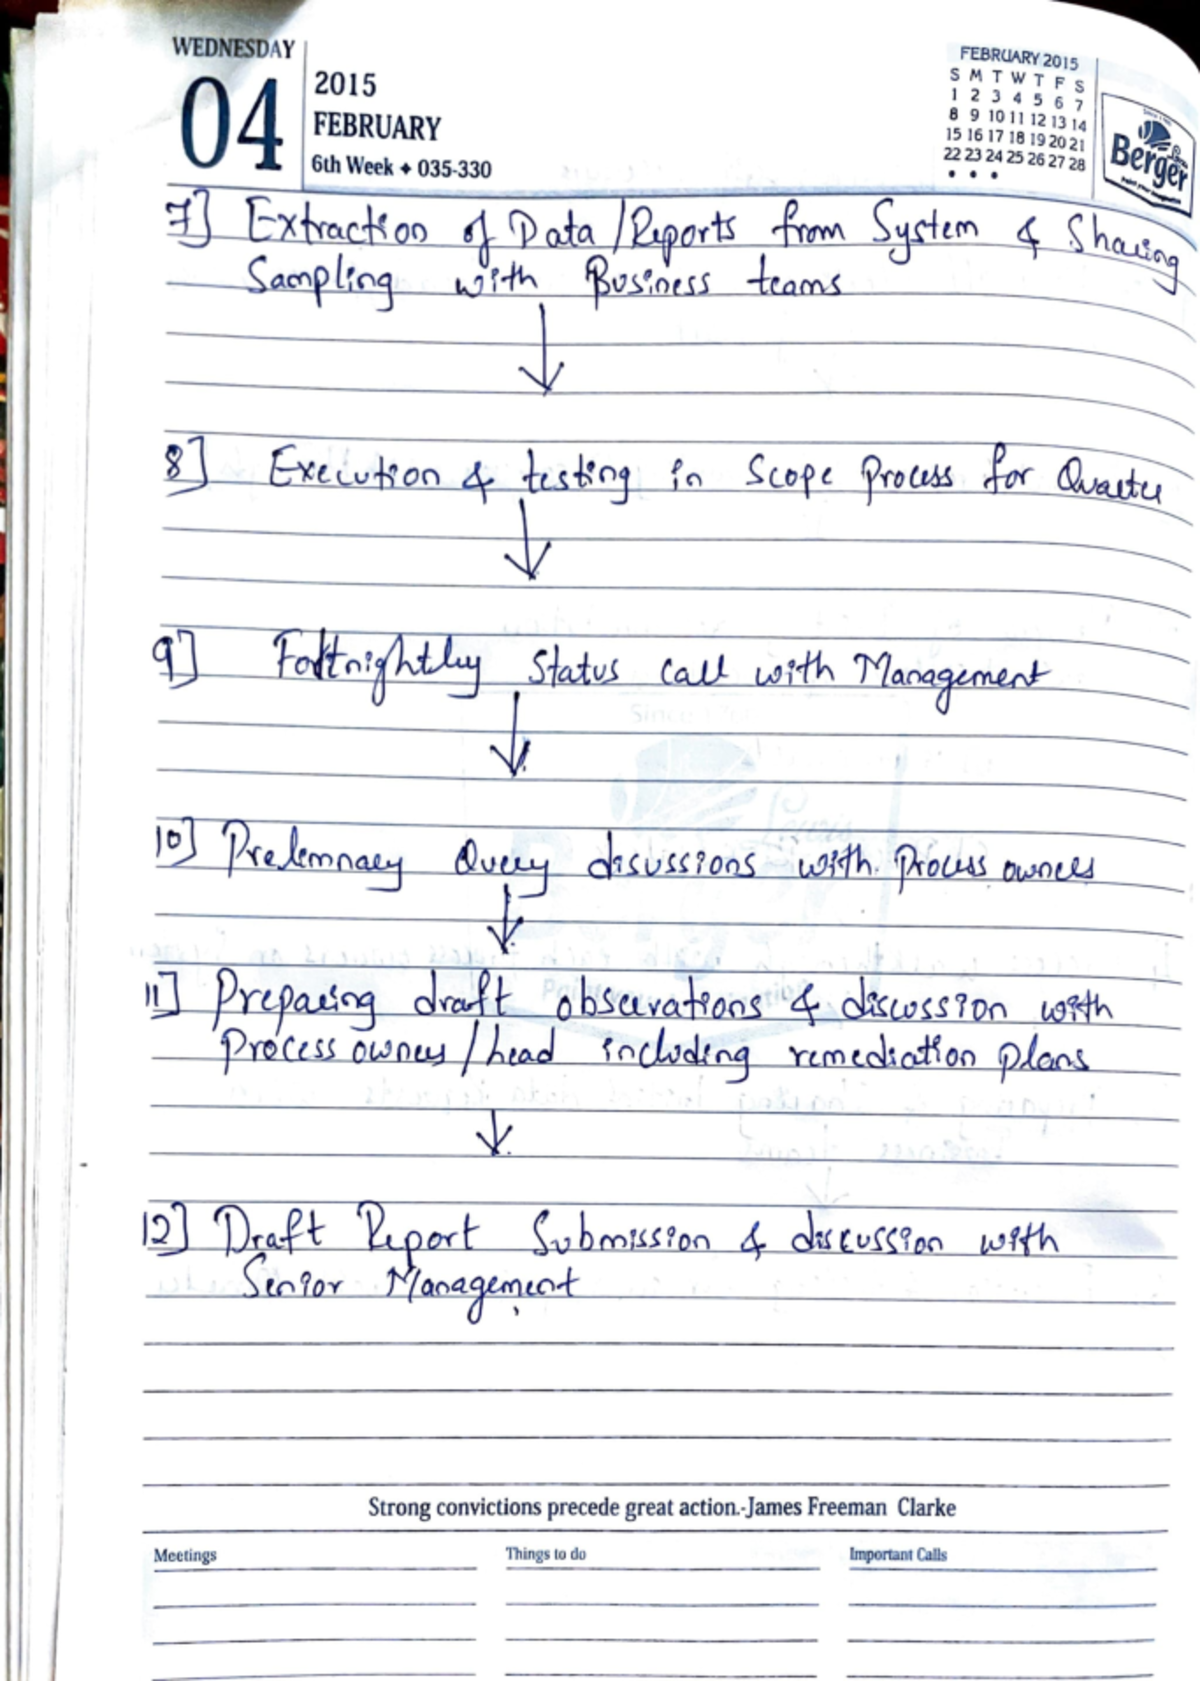 WEDNESDAY
04
2015
FEBRUARY
6th Week ✦ 035-330
FEBRUARY 2015
S M T W T F S
1 2 3 4 5 6 7
8 9 10 11 12 13 14
15 16 17 18 19 20 21
22 23 24 25 26 27 28
Berger
7] Extraction of Data / Reports from System & Sharing
Sampling with Business teams
↓
8] Execution & testing in Scope Process for Quarter
↓
9] Fortnightly Status call with Management
↓
10] Prelemnary Query disussions with Process owners
↓
11] Preparing draft observations & discussion with
Process owners / head including remediation plans
↓
12] Draft Report Submission & discussion with
Senior Management
Strong convictions precede great action.-James Freeman Clarke
Meetings
Things to do
Important Calls